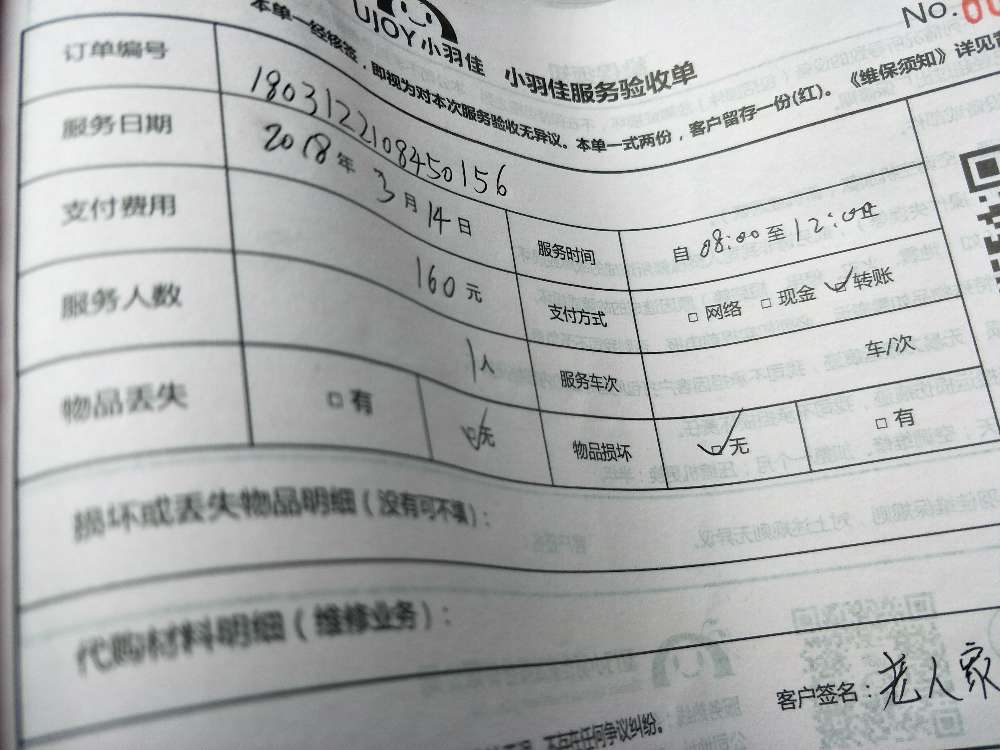 No.
UJOY小羽佳 小羽佳服务验收单
本单一经核签，即视为对本次服务验收无异议。本单一式两份，客户留存一份(红)。《维保须知》详见
订单编号 1803122108450156
服务日期 2018年3月14日 服务时间 自08:00至12:00止
支付费用 160元 支付方式 □网络 □现金 ☑转账
服务人数 1人 服务车次 车/次
物品丢失 □有 ☑无 物品损坏 ☑无 □有
损坏或丢失物品明细（没有可不填）：
代购材料明细（维修业务）：
客户签名：老人家
不存在任何争议纠纷。